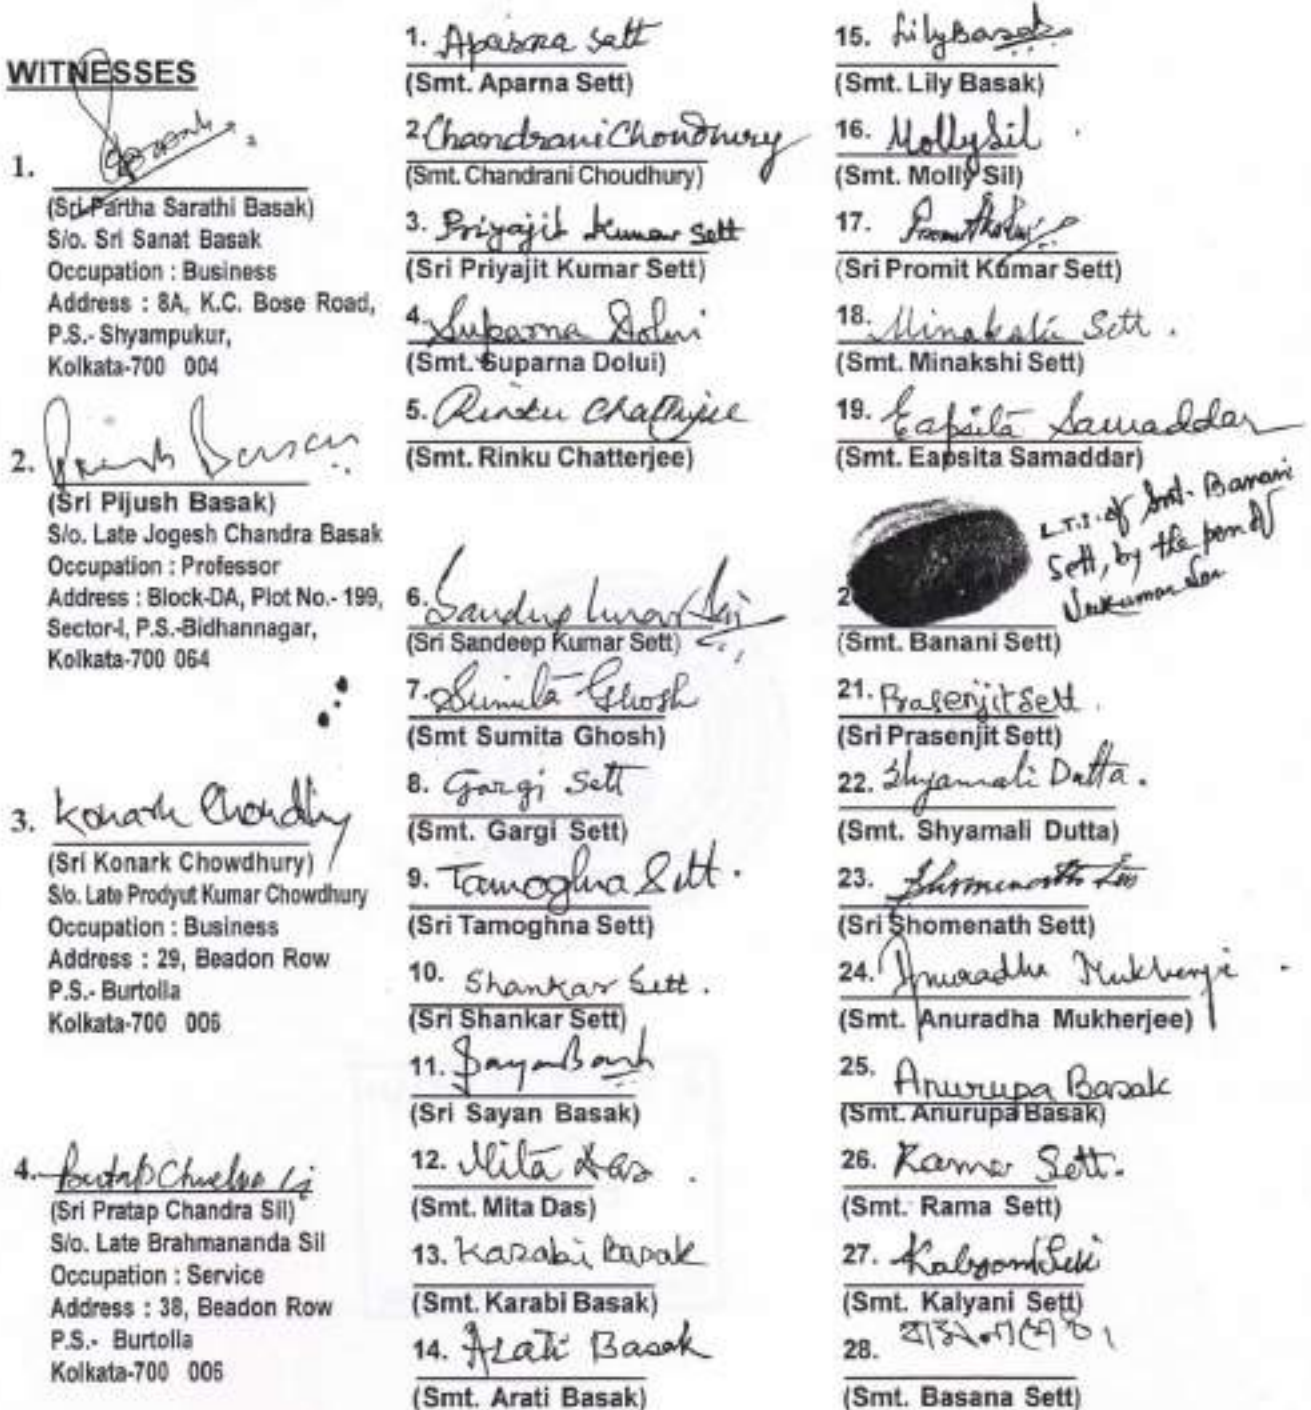 WITNESSES
1.
(Sri Partha Sarathi Basak)
S/o. Sri Sanat Basak
Occupation : Business
Address : 8A, K.C. Bose Road,
P.S.- Shyampukur,
Kolkata-700 004
2.
(Sri Pijush Basak)
S/o. Late Jogesh Chandra Basak
Occupation : Professor
Address : Block-DA, Plot No.- 199,
Sector-I, P.S.-Bidhannagar,
Kolkata-700 064
3. Konark Chowdhury
(Sri Konark Chowdhury)
S/o. Late Prodyut Kumar Chowdhury
Occupation : Business
Address : 29, Beadon Row
P.S.- Burtolla
Kolkata-700 006
4. Pratap Chandra Sil
(Sri Pratap Chandra Sil)
S/o. Late Brahmananda Sil
Occupation : Service
Address : 38, Beadon Row
P.S.- Burtolla
Kolkata-700 006
1. Aparna Sett
(Smt. Aparna Sett)
2. Chandrani Choudhury
(Smt. Chandrani Choudhury)
3. Priyajit Kumar Sett
(Sri Priyajit Kumar Sett)
4. Suparna Dolui
(Smt. Suparna Dolui)
5. Rinku Chatterjee
(Smt. Rinku Chatterjee)
6. Sandeep Kumar Sett
(Sri Sandeep Kumar Sett)
7. Sumita Ghosh
(Smt Sumita Ghosh)
8. Gargi Sett
(Smt. Gargi Sett)
9. Tamoghna Sett.
(Sri Tamoghna Sett)
10. Shankar Sett.
(Sri Shankar Sett)
11. Sayan Basak
(Sri Sayan Basak)
12. Mita Das
(Smt. Mita Das)
13. Karabi Basak
(Smt. Karabi Basak)
14. Arati Basak
(Smt. Arati Basak)
15. Lily Basak
(Smt. Lily Basak)
16. Molly Sil
(Smt. Molly Sil)
17.
(Sri Promit Kumar Sett)
18. Minakshi Sett.
(Smt. Minakshi Sett)
19. Eapsita Samaddar
(Smt. Eapsita Samaddar)
L.T.I. of Smt. Banani
Sett, by the pen of
2
(Smt. Banani Sett)
21. Prasenjit Sett.
(Sri Prasenjit Sett)
22. Shyamali Dutta.
(Smt. Shyamali Dutta)
23. Shomenath Sett
(Sri Shomenath Sett)
24. Anuradha Mukherjee
(Smt. Anuradha Mukherjee)
25. Anurupa Basak
(Smt. Anurupa Basak)
26. Rama Sett.
(Smt. Rama Sett)
27. Kalyani Sett
(Smt. Kalyani Sett)
28.
(Smt. Basana Sett)